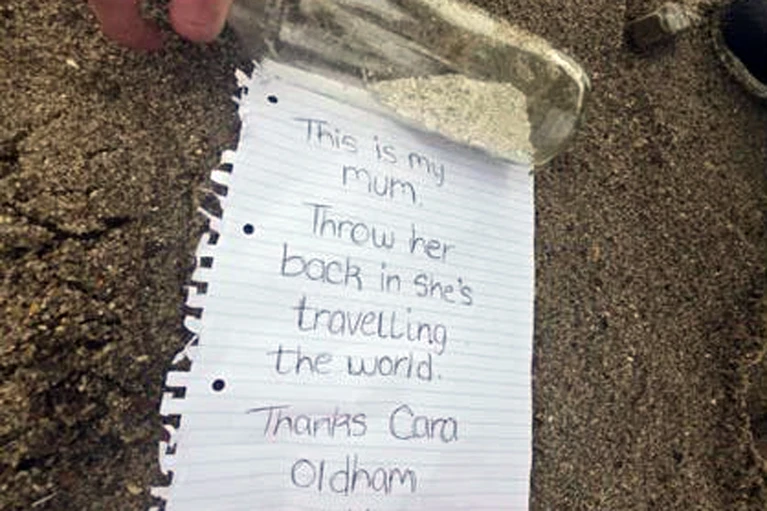 This is my
mum.
Throw her
back in she's
travelling
the world.
Thanks Cara
Oldham